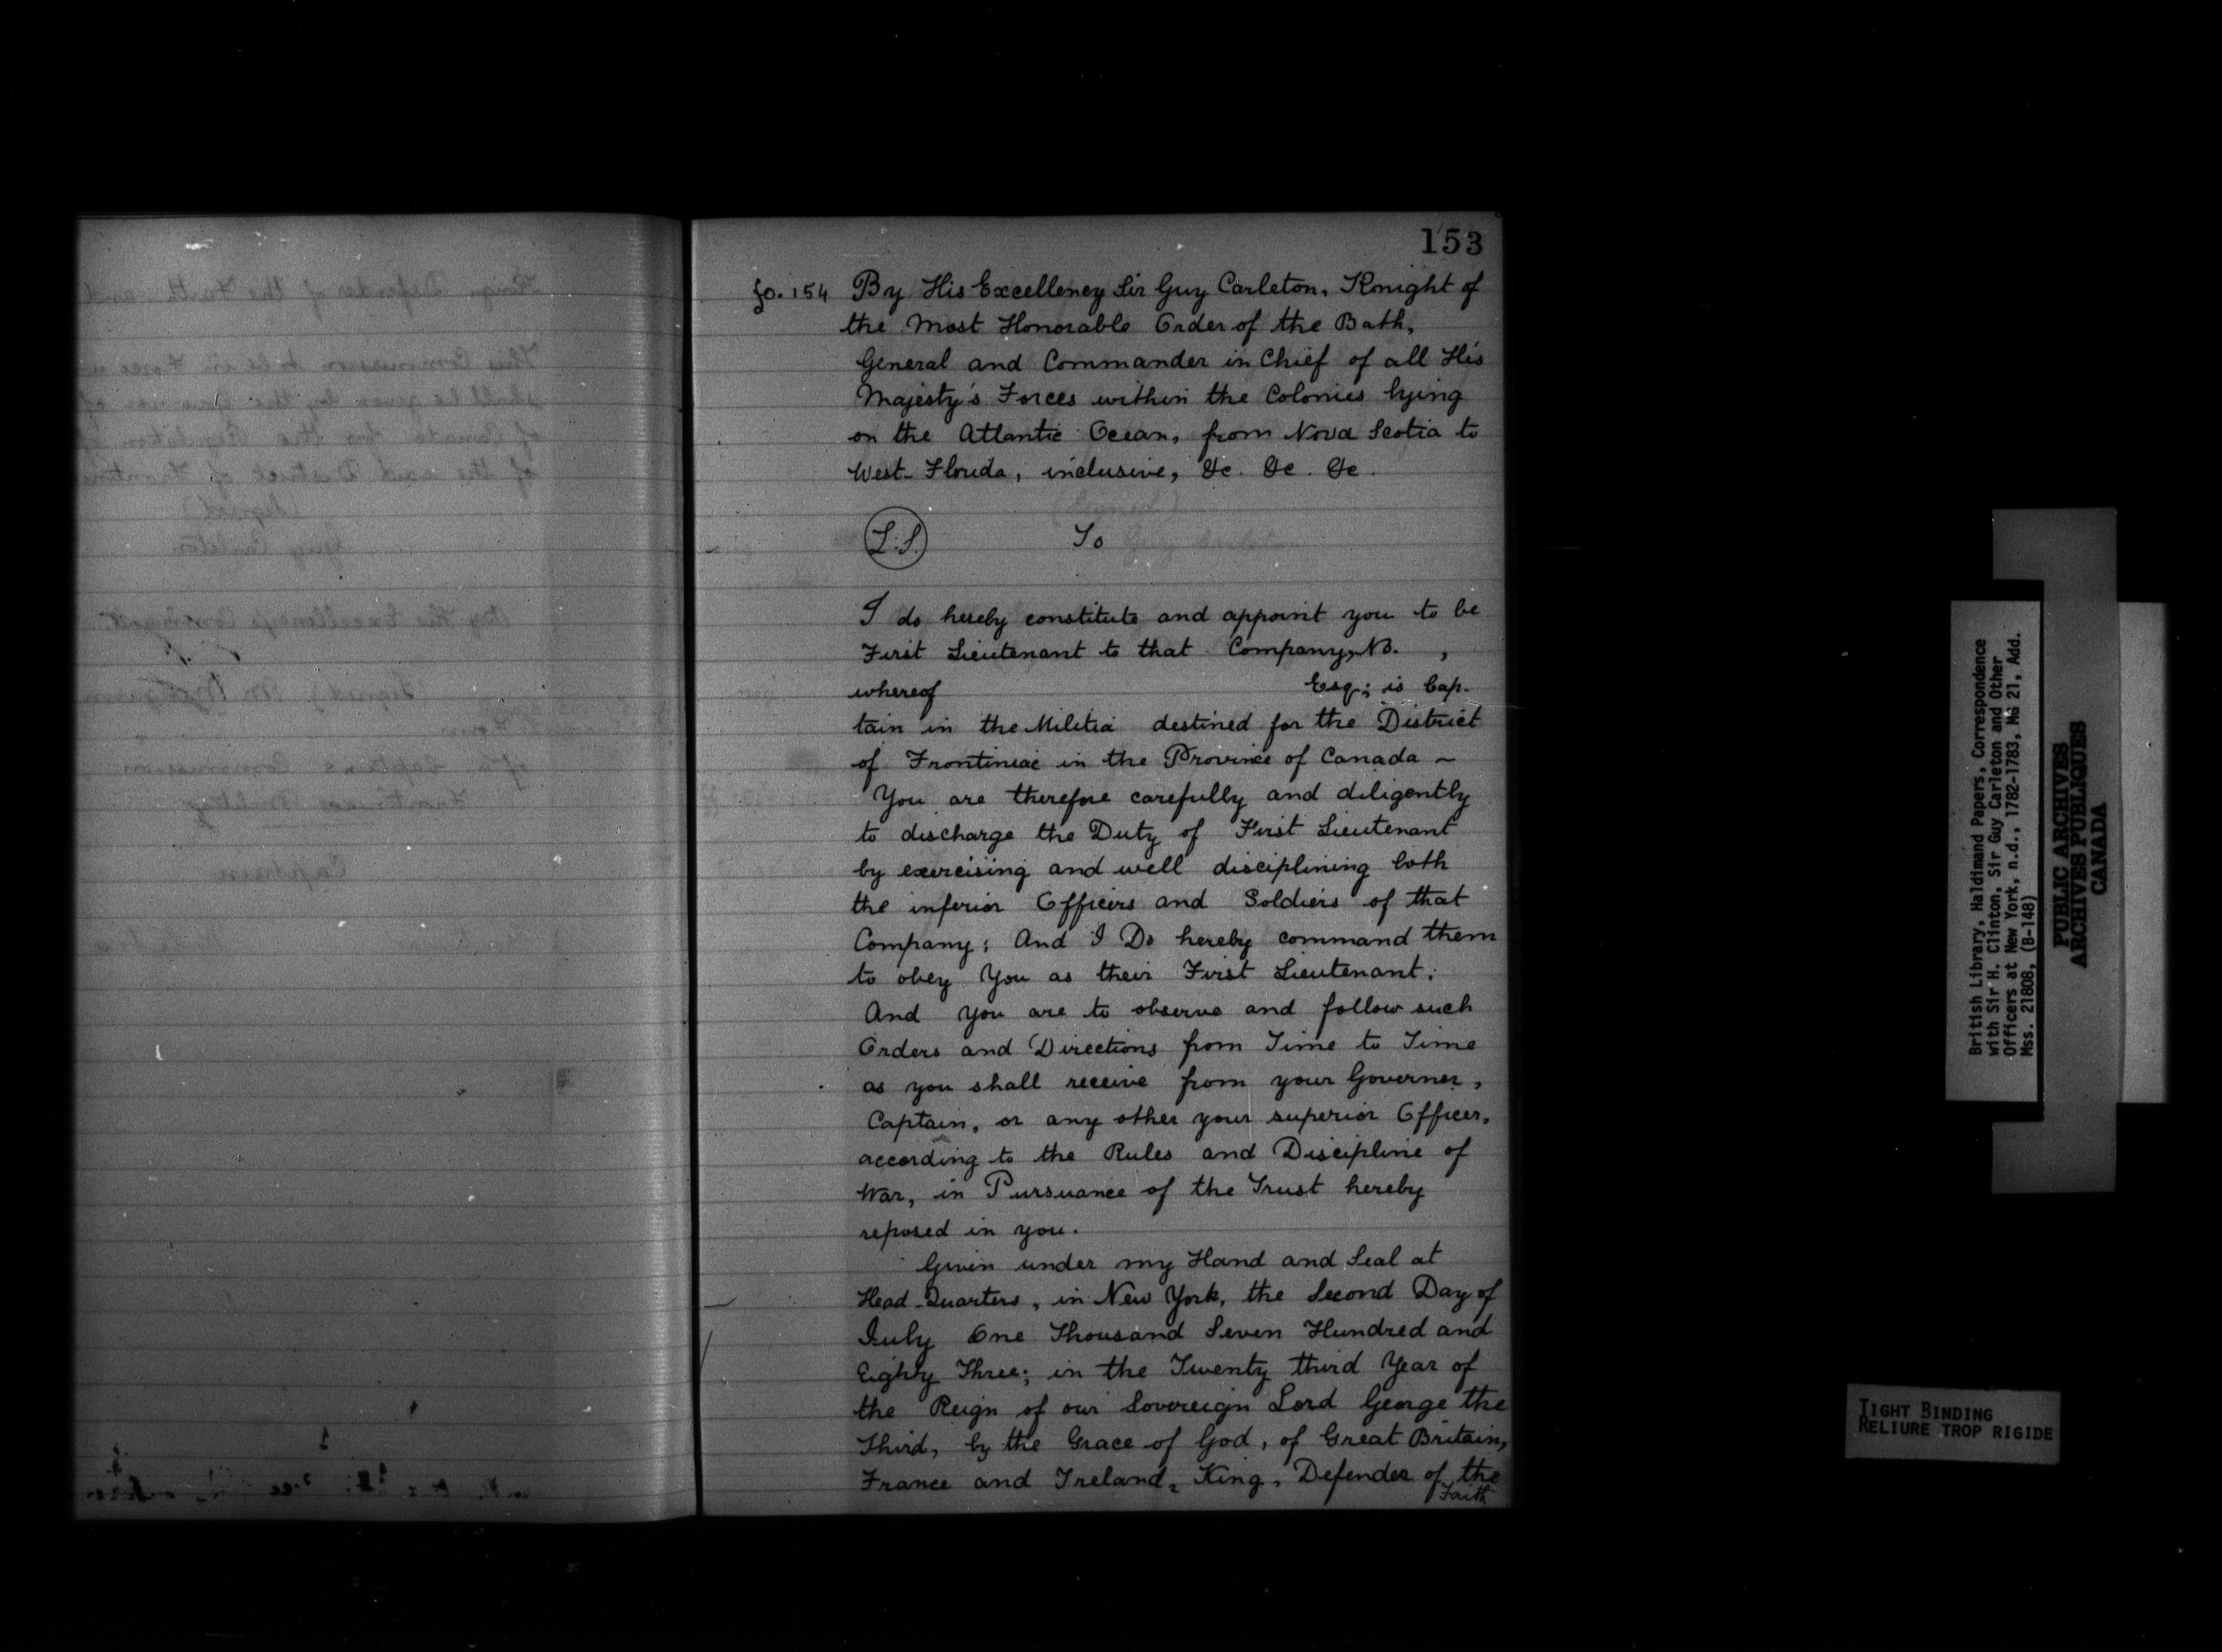 153
fo. 154 By His Excellency Sir Guy Carleton, Knight of
the Most Honorable Order of the Bath,
General and Commander in Chief of all His
Majesty's Forces within the Colonies lying
on the Atlantic Ocean, from Nova Scotia to
West-Florida, inclusive, &c. &c. &c.
L.S. To
I do hereby constitute and appoint you to be
First Lieutenant to that Company, No. ,
whereof Esq; is Cap-
tain in the Militia destined for the District
of Frontiniac in the Province of Canada ~
You are therefore carefully and diligently
to discharge the Duty of First Lieutenant
by exercising and well disciplining both
the inferior Officers and Soldiers of that
Company; And I Do hereby command them
to obey You as their First Lieutenant;
And you are to observe and follow such
Orders and Directions from Time to Time
as you shall receive from your Governor,
Captain, or any other your superior Officer,
according to the Rules and Discipline of
War, in Pursuance of the Trust hereby
reposed in you.
Given under my Hand and Seal at
Head-Quarters, in New York, the Second Day of
July One Thousand Seven Hundred and
Eighty Three; in the Twenty third Year of
the Reign of our Sovereign Lord George the
Third, by the Grace of God, of Great Britain,
France and Ireland, King, Defender of the
Faith
British Library, Haldimand Papers, Correspondence
with Sir H. Clinton, Sir Guy Carleton and Other
Officers at New York, n.d., 1782-1783, MG 21, Add.
Mss. 21808, (B-148)
PUBLIC ARCHIVES
ARCHIVES PUBLIQUES
CANADA
TIGHT BINDING
RELIURE TROP RIGIDE